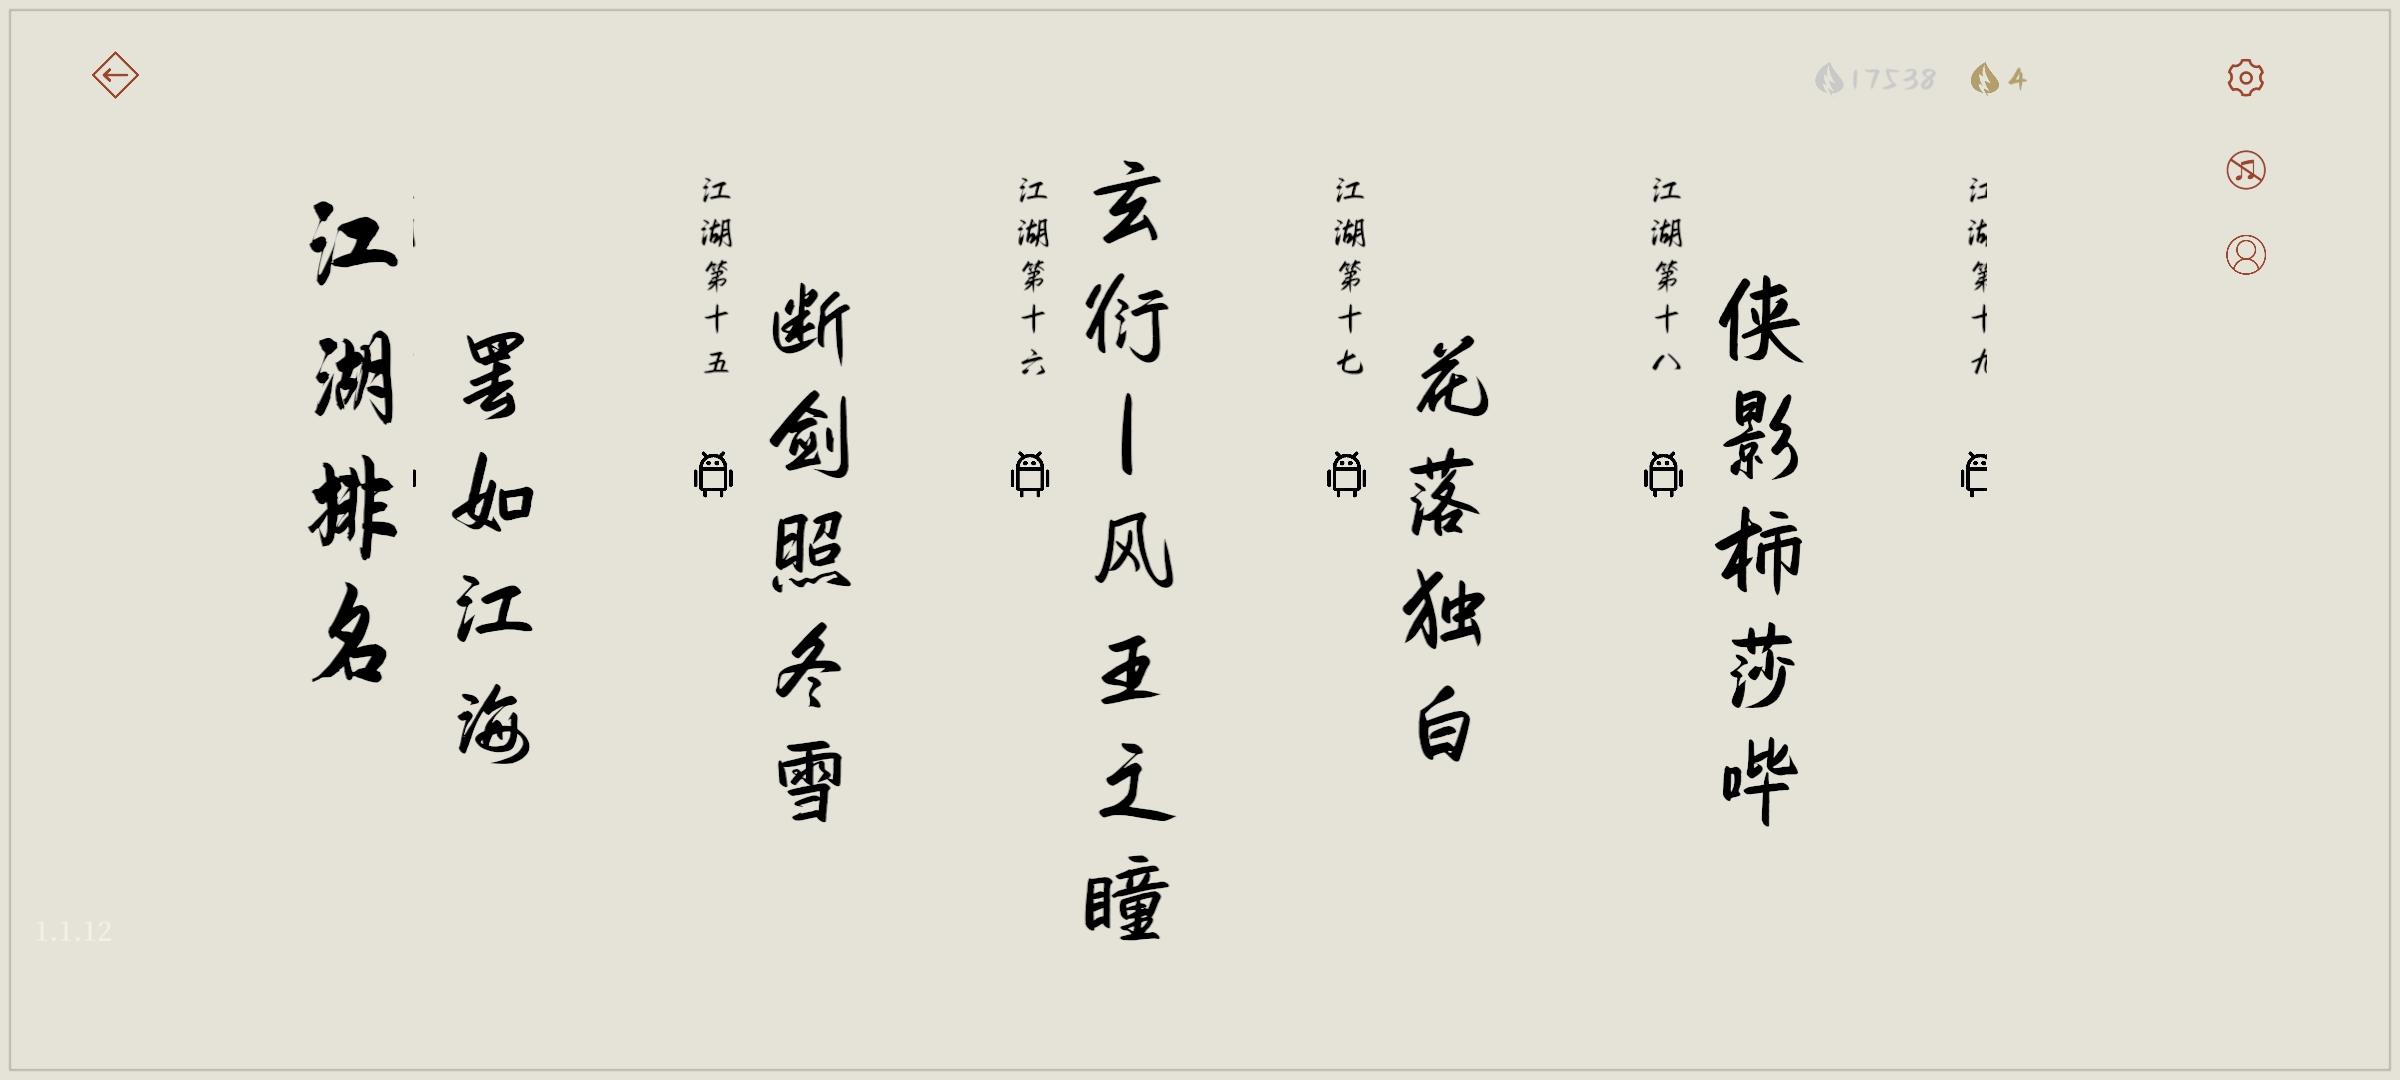 17538
4
江湖排名
罢如江海
江湖第十五
断剑照冬雪
江湖第十六
玄衍丨风王之瞳
江湖第十七
花落独白
江湖第十八
侠影柿莎哔
江湖第十九
1.1.12